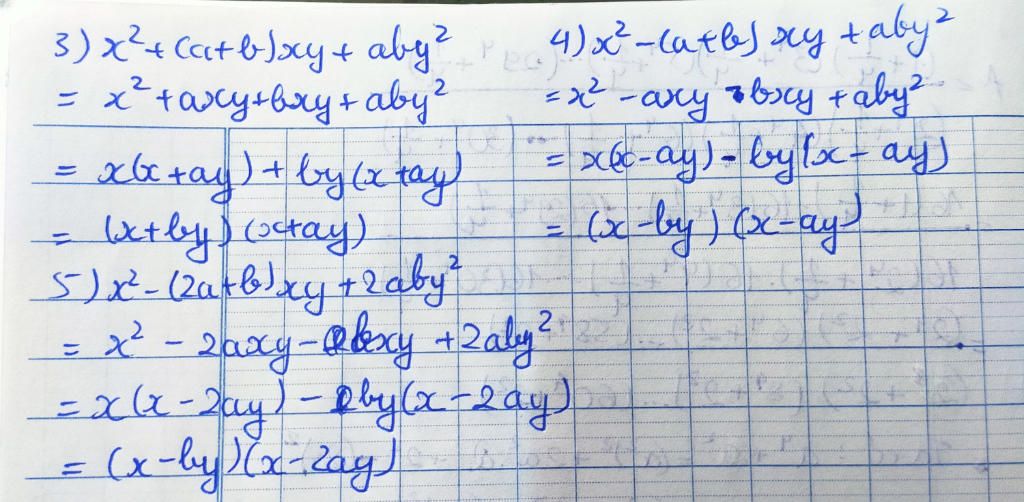 3) x² + (a+b)xy + aby²
= x² + axy + bxy + aby²
= x(x + ay) + by(x + ay)
= (x + by)(x + ay)
4) x² - (a+b)xy + aby²
= x² - axy - bxy + aby²
= x(x - ay) - by(x - ay)
= (x - by)(x - ay)
5) x² - (2a+b)xy + 2aby²
= x² - 2axy - bxy + 2aby²
= x(x - 2ay) - by(x - 2ay)
= (x - by)(x - 2ay)